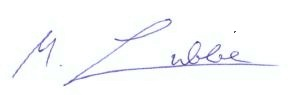 M. Lubbie